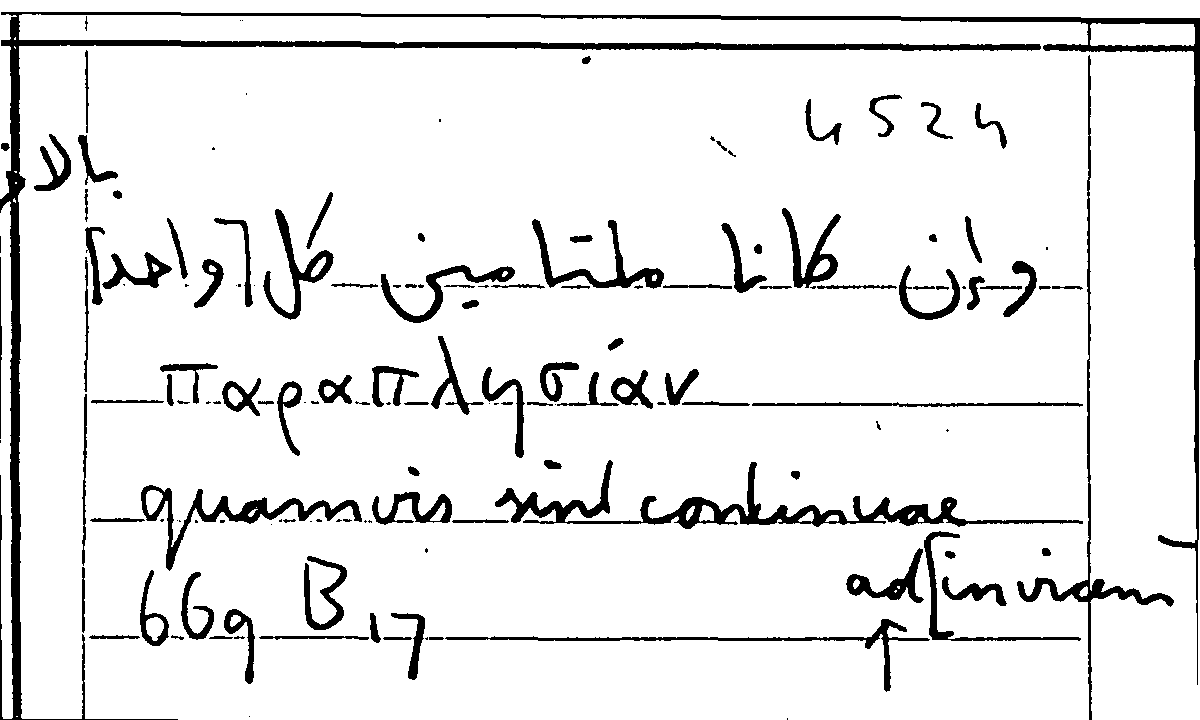 4524
بالآخر
وإن كانا ملتامين كل [واحد]
παραπλησίαν
quamvis sint continuae
ad[invicem
669 B 17